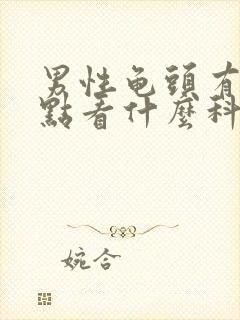 男性龟頭有
點看什麼科
婉合